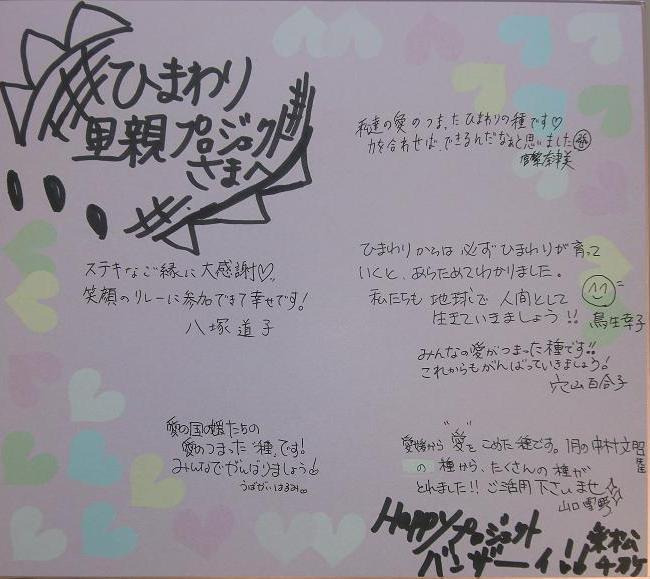 ひまわり
里親プロジェクト
さまへ
私達の愛のつまったひまわりの種です♡
力を合わせば、できるんだなぁと思いました
奈津美
ステキなご縁に大感謝♡
笑顔のリレーに参加できて幸せです!
八塚道子
ひまわりからは必ずひまわりが育って
いくと、あらためてわかりました。
私たちも地球で人間として
生きていきましょう!!
鳥生幸子
みんなの愛がつまった種です!!
これからもがんばっていきましょう!
穴山百合子
愛の国の媛たちの
愛のつまった種です!
みんなでがんばりましょう
うばがいはるみ
愛媛から"愛"をこめた種です。1月の中村文昭
の種から、たくさんの種が
とれました!!ご活用下さいませ
山口雪野
Happyプロジェクト
バンザーイ!!